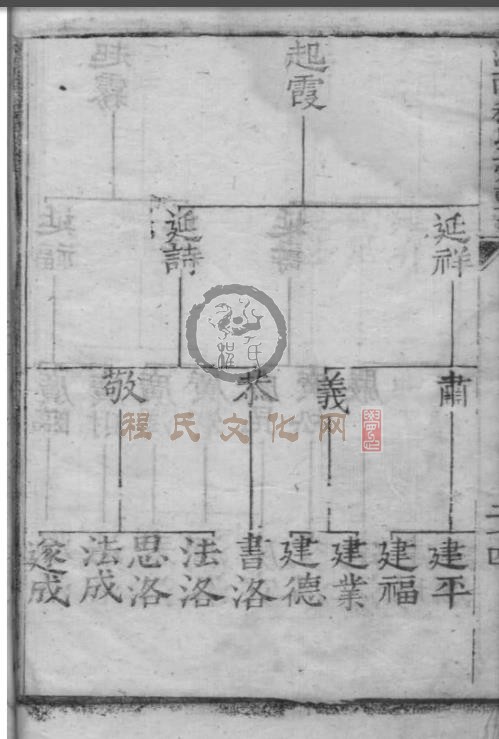 起霞
延祥
延詩
肅
義
恭
敬
建平
建福
建業
建德
書洛
法洛
思洛
法成
程氏文化网